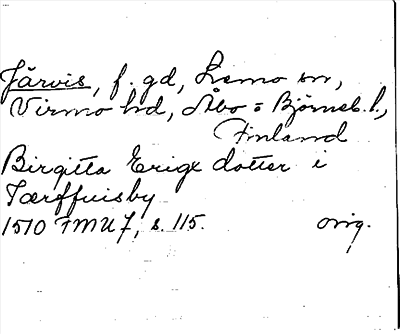 Järvis, f. gd, Lemo sn,
Virmo hd, Åbo = Björneb. l.,
Finland
Birgitta Erigx dotter i
Tærffuisby
1510 FMU 7, s. 115. orig.